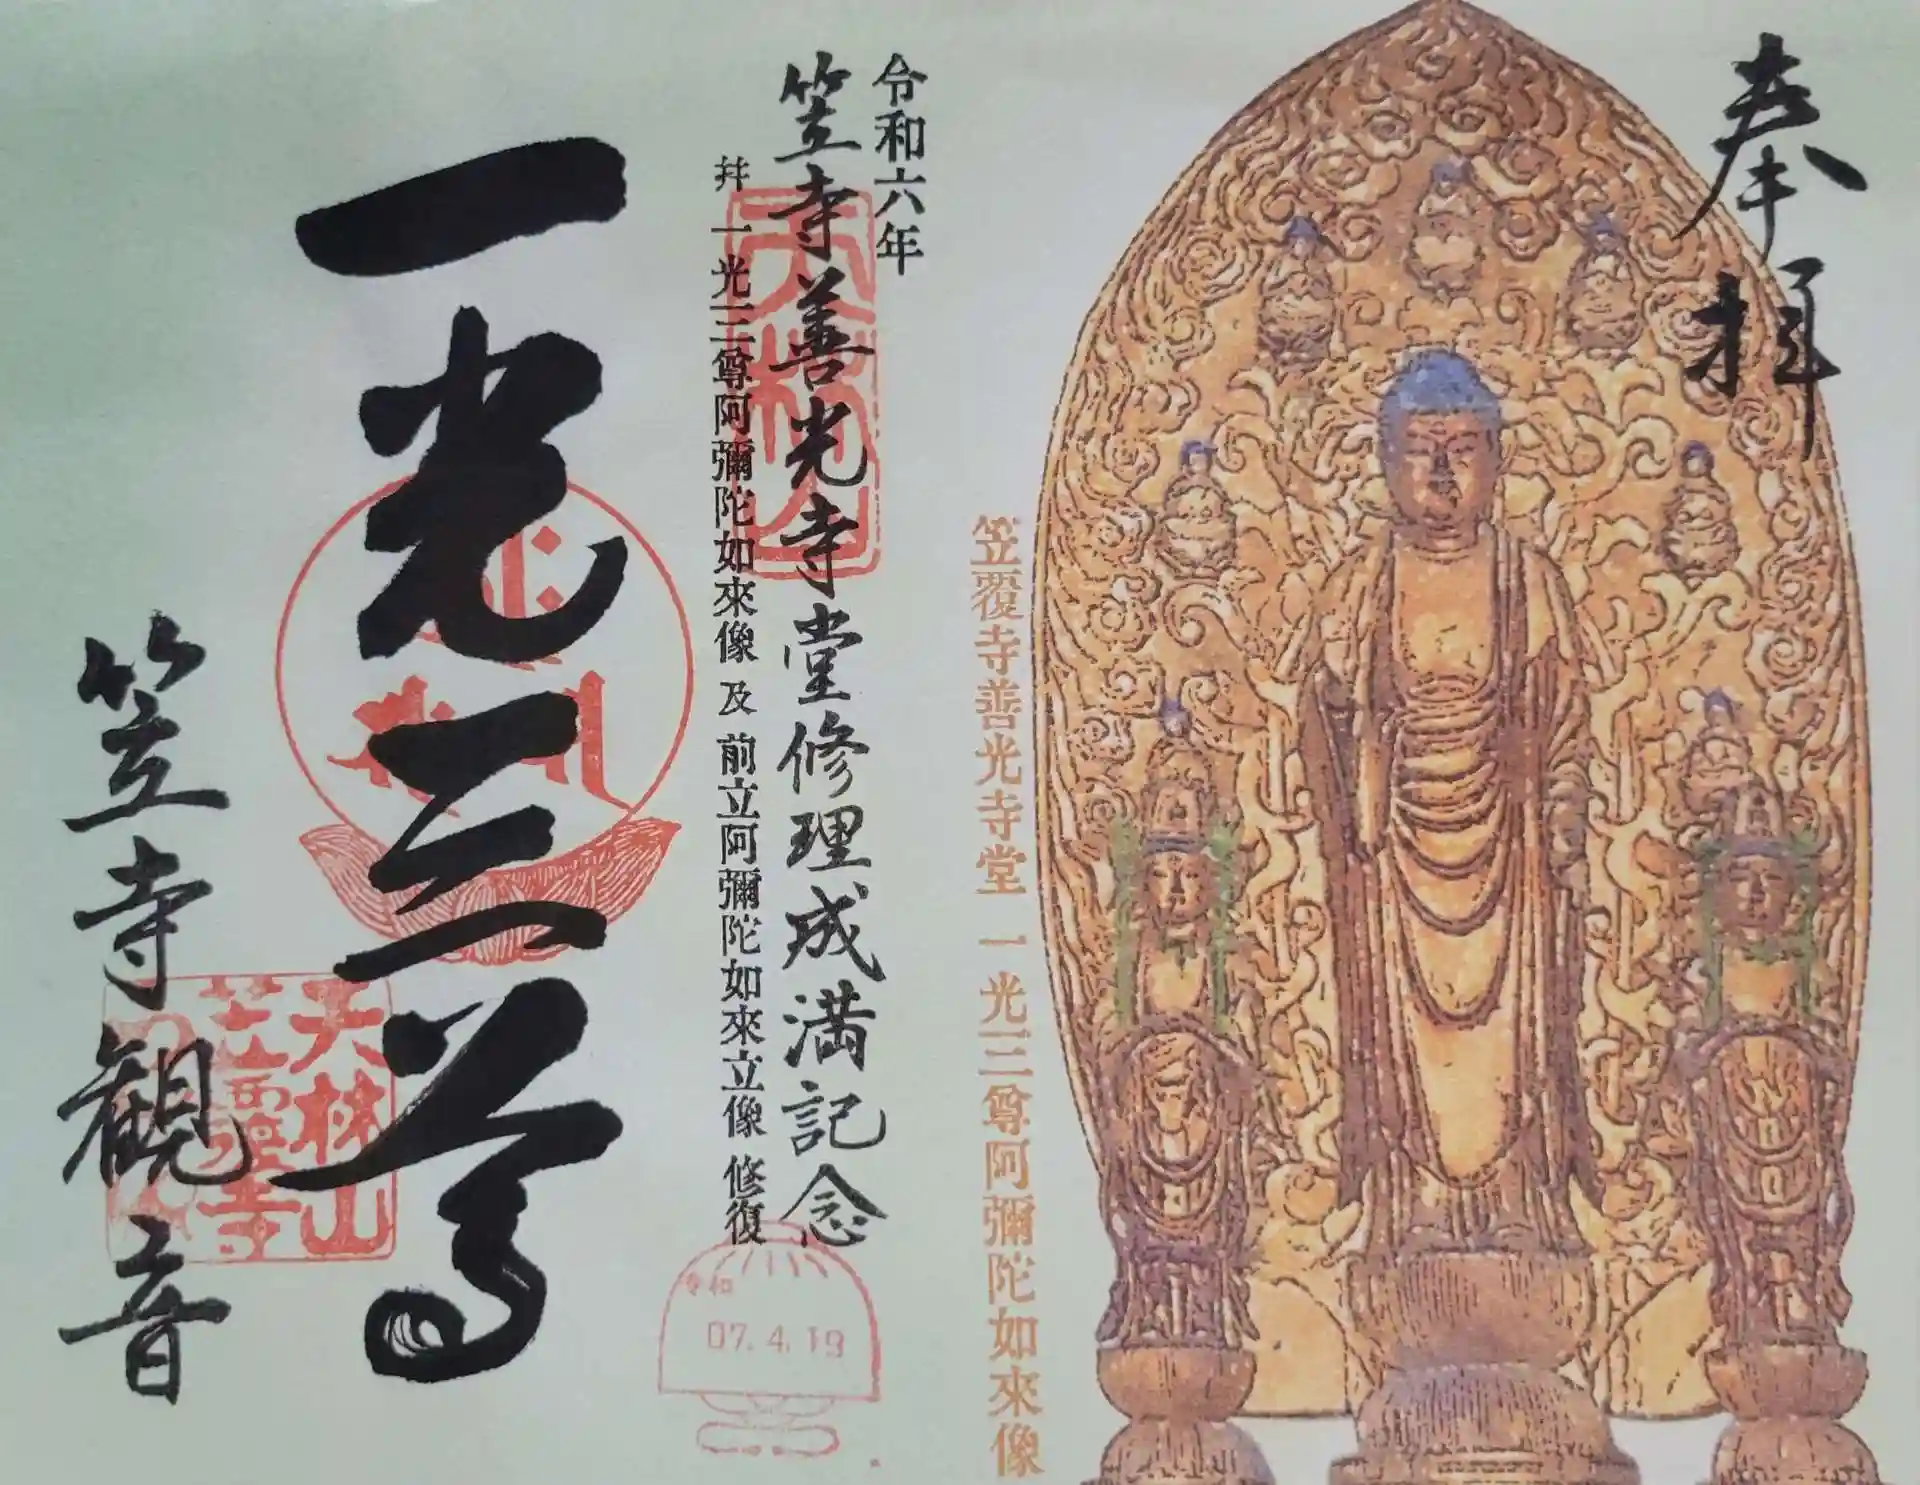 奉拝
笠覆寺善光寺堂 一光三尊阿彌陀如來像
令和六年
笠寺善光寺堂修理成満記念
幷一光三尊阿彌陀如來像 及 前立阿彌陀如來立像 修復
天林山
令和
07.4.19
一光三尊
天林山
笠覆寺
笠寺観音